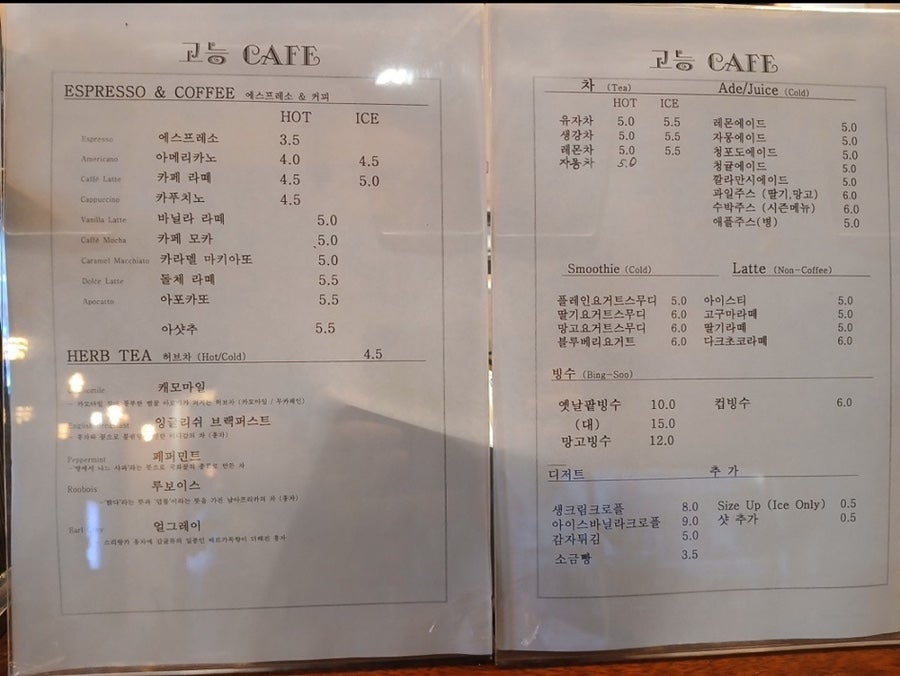 고능 CAFE
ESPRESSO & COFFEE 에스프레소 & 커피
HOT ICE
Espresso 에스프레소 3.5
Americano 아메리카노 4.0 4.5
Caffè Latte 카페 라떼 4.5 5.0
Cappuccino 카푸치노 4.5
Vanilla Latte 바닐라 라떼 5.0
Caffè Mocha 카페 모카 5.0
Caramel Marchiato 카라멜 마키아또 5.0
Dolce Latte 돌체 라떼 5.5
아포카또 5.5
아샷추 5.5
HERB TEA 허브차 (Hot/Cold) 4.5
캐모마일
English Breakfast 잉글리쉬 브랙퍼스트
Peppermint 페퍼민트
Roobois 루보이스
Earl Grey 얼그레이
고능 CAFE
차 (Tea)
HOT ICE
유자차 5.0 5.5
생강차 5.0 5.5
레몬차 5.0 5.5
자몽차 5.0
Ade/Juice (Cold)
레몬에이드 5.0
자몽에이드 5.0
청포도에이드 5.0
청귤에이드 5.0
깔라만시에이드 5.0
과일주스 (딸기,망고) 6.0
수박주스 (시즌메뉴) 6.0
애플주스(병) 5.0
Smoothie (Cold)
플레인요거트스무디 5.0
딸기요거트스무디 6.0
망고요거트스무디 6.0
블루베리요거트 6.0
Latte (Non-Coffee)
아이스티 5.0
고구마라떼 5.0
딸기라떼 5.0
다크초코라떼 5.0
빙수 (Bing-Soo)
옛날팥빙수 10.0 컵빙수 6.0
(대) 15.0
망고빙수 12.0
디저트
생크림크로플 8.0
아이스바닐라크로플 9.0
감자튀김 5.0
소금빵 3.5
추 가
Size Up (Ice Only) 0.5
샷 추가 0.5